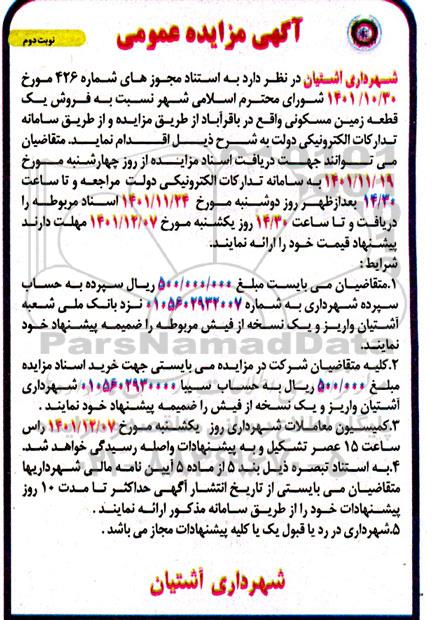 آگهی مزایده عمومی
نوبت دوم
شهرداری آشتیان در نظر دارد به استناد مجوز های شماره ۴۲۶ مورخ
۱۴۰۱/۱۰/۳۰ شورای محترم اسلامی شهر نسبت به فروش یک
قطعه زمین مسکونی واقع در باقرآباد از طریق مزایده و از طریق سامانه
تدارکات الکترونیکی دولت به شرح ذیل اقدام نمایید. متقاضیان
می توانند جهت دریافت اسناد مزاینده از روز چهارشنبه مورخ
۱۴۰۱/۱۱/۱۹ به سامانه تدارکات الکترونیکی دولت مراجعه و تا ساعت
۱۴/۳۰ بعدازظهر روز دوشنبه مورخ ۱۴۰۱/۱۱/۲۴ اسناد مربوطه را
دریافت و تا ساعت ۱۴/۳۰ روز یکشنبه مورخ ۱۴۰۱/۱۲/۰۷ مهلت دارند
پیشنهاد قیمت خود را ارائه نمایند.
شرایط :
۱.متقاضیان می بایست مبلغ ۵۰۰/۰۰۰/۰۰۰ ریال سپرده به حساب
سپرده شهرداری به شماره ۰۱۰۵۶۰۲۹۳۲۰۰۷ نزد بانک ملی شعبه
آشتیان واریز و یک نسخه از فیش مربوطه را ضمیمه پیشنهاد خود
نمایند.
ParsNamadData
۲.کلیه متقاضیان شرکت در مزایده می بایستی جهت خرید اسناد مزایده
مبلغ ۵۰۰/۰۰۰ ریال به حساب سیبا ۰۱۰۵۶۰۲۹۳۰۰۰۰ شهرداری
آشتیان واریز و یک نسخه از فیش را ضمیمه پیشنهاد خود نمایند .
۳.کمیسیون معاملات شهرداری روز یکشنبه مورخ ۱۴۰۱/۱۲/۰۷ راس
ساعت ۱۵ عصر تشکیل و به پیشنهادات واصله رسیدگی خواهد شد.
۴.به استناد تبصره ذیل بند ۵ از ماده ۵ آیین نامه مالی شهرداریها
متقاضیان می بایستی از تاریخ انتشار آگهی حداکثر تا مدت ۱۰ روز
پیشنهادات خود را از طریق سامانه مذکور ارائه نمایند .
۵.شهرداری در رد یا قبول یک یا کلیه پیشنهادات مجاز می باشد .
شهرداری آشتیان